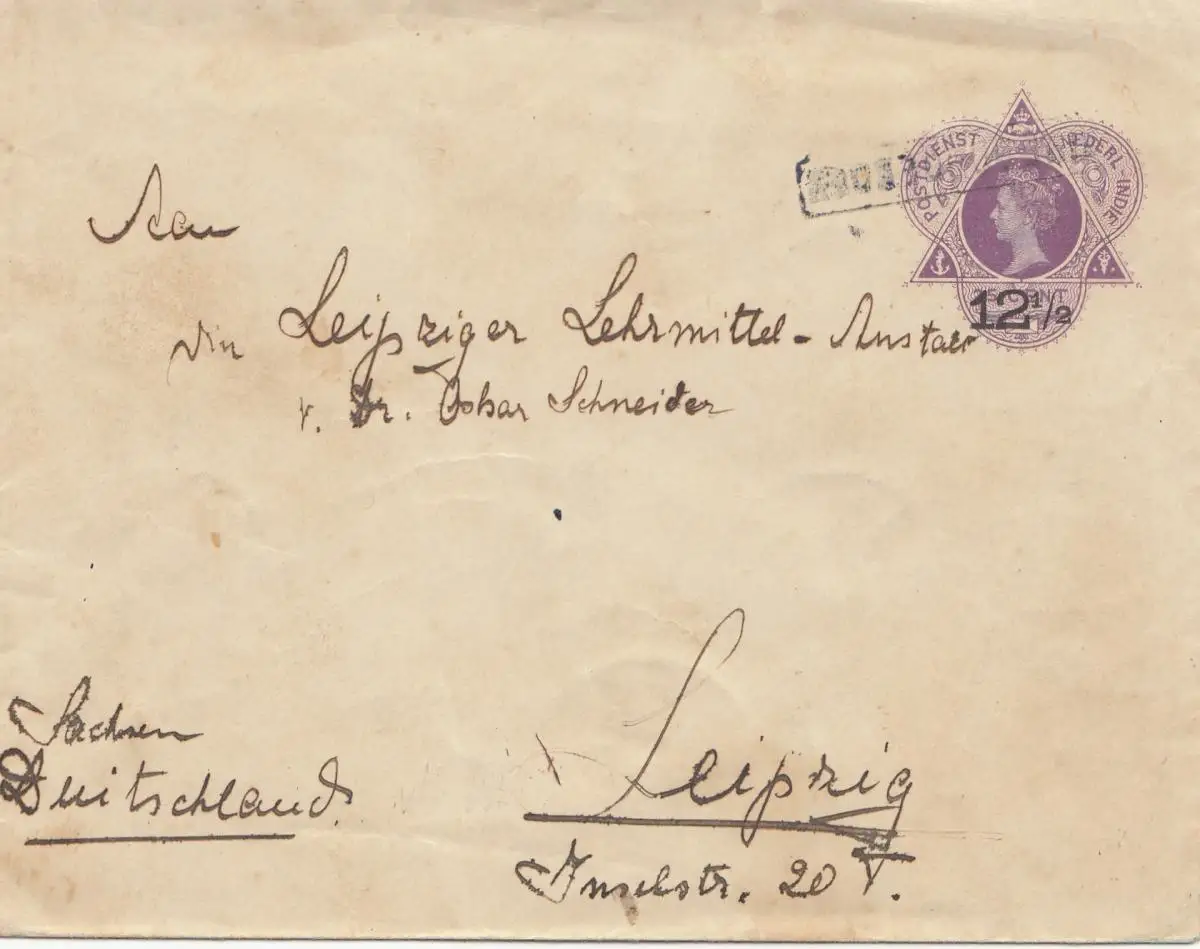 POSTDIENST NEDERL-INDIE
12½
Aan
Leipziger Lehrmittel-Anstalt
v. Dr. Oskar Schneider
Sachsen
Duitschland.
Leipzig
Inselstr. 20